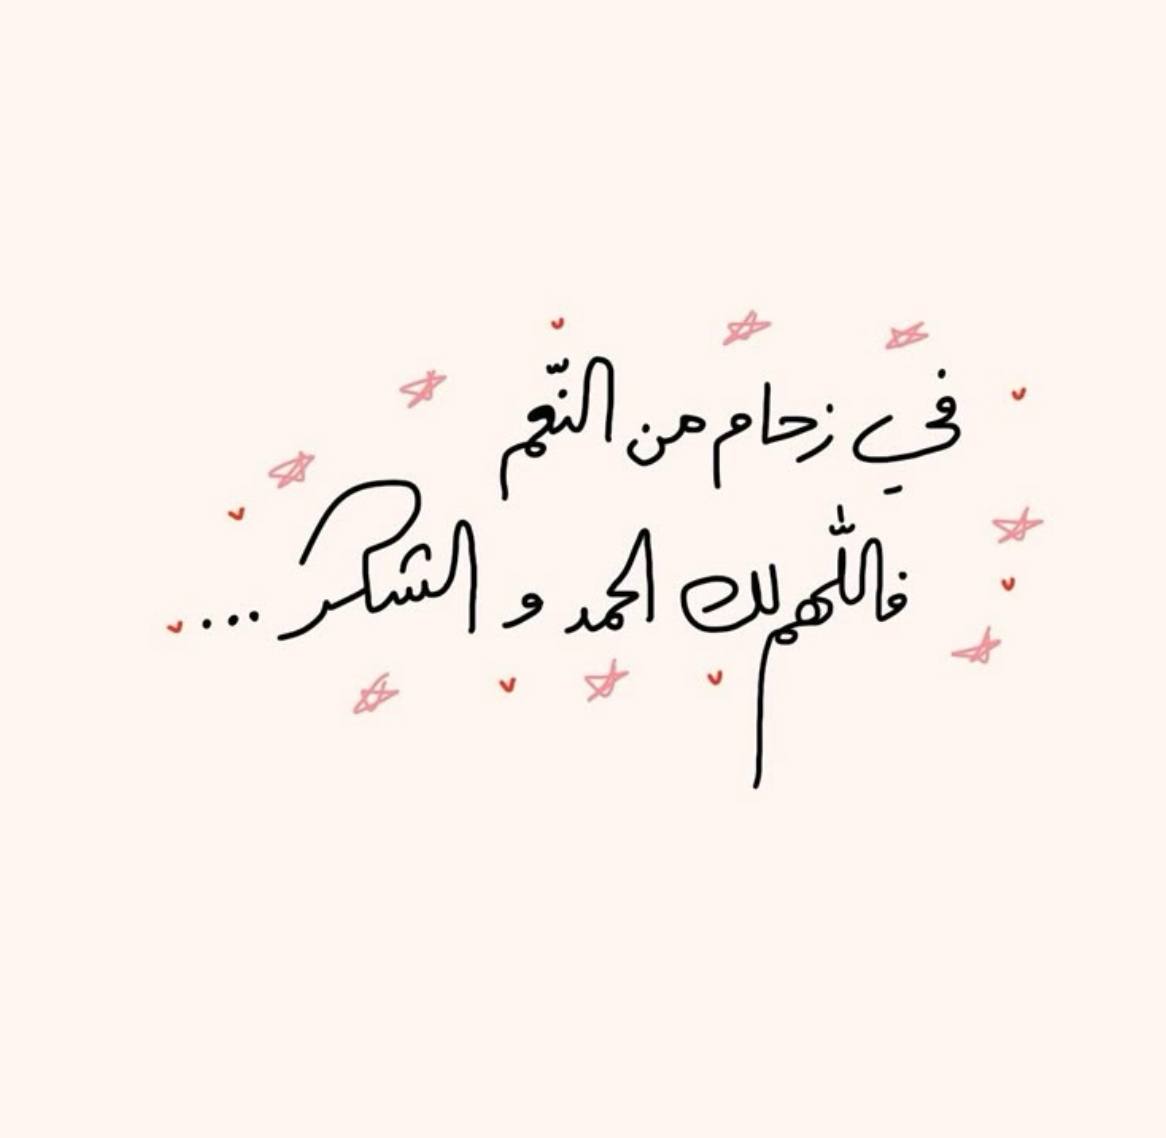 في زحام من النّعم
فاللّٰهم لك الحمد و الشكر ...